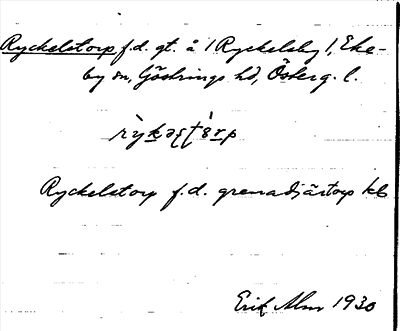 Ryckelstorp f.d. gt. å 1 Ryckelsby 1, Eke-
by sn, Göstrings hd, Österg. l.
Ryckelstorp f.d. grenadjärstorp kb
Erik Alm 1930